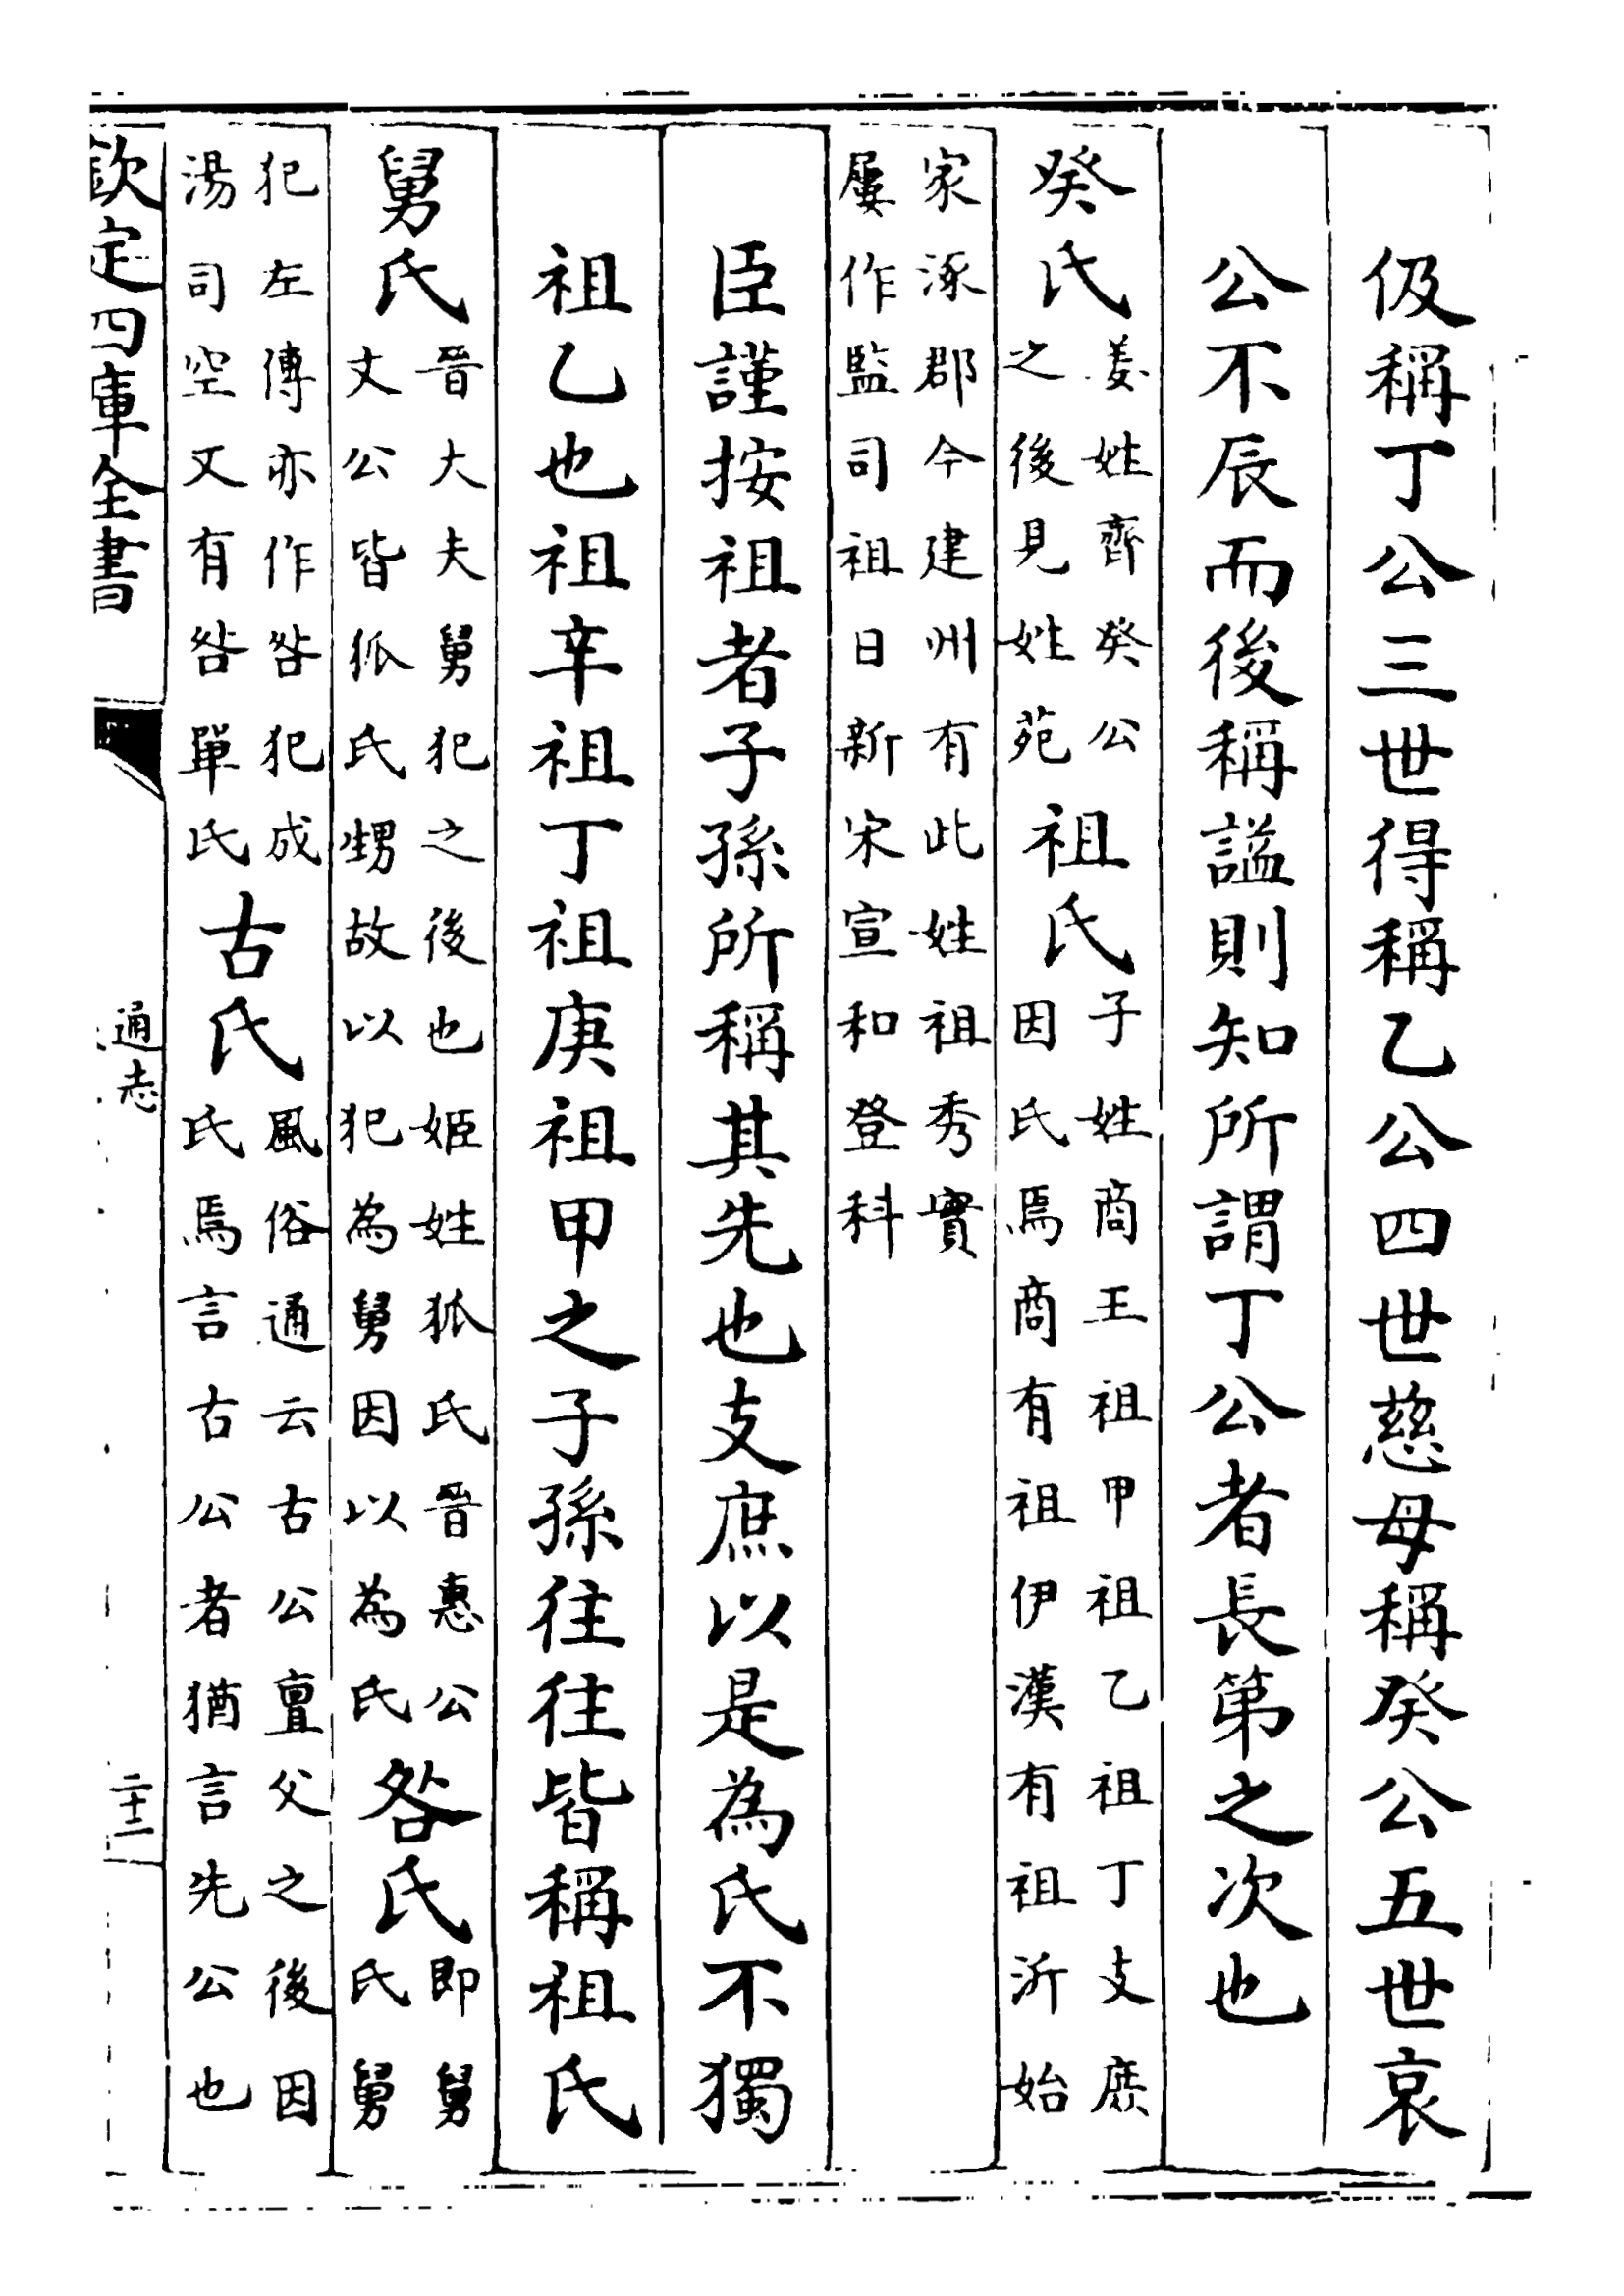 伋稱丁公三世得稱乙公四世慈母稱癸公五世哀
公不辰而後稱謚則知所謂丁公者長第之次也
癸氏姜姓齊癸公之後見姓苑祖氏子姓商王祖甲祖乙祖丁支庶因氏焉商有祖伊漢有祖沂始
家涿郡今建州有此姓祖秀實屢作監司祖日新宋宣和登科
臣謹按祖者子孫所稱其先也支庶以是為氏不獨
祖乙也祖辛祖丁祖庚祖甲之子孫往往皆稱祖氏
舅氏晉大夫舅犯之後也姬姓狐氏晉惠公文公皆狐氏甥故以犯為舅因以為氏咎氏即舅氏舅
犯左傳亦作咎犯成湯司空又有咎單氏古氏風俗通云古公亶父之後因氏焉言古公者猶言先公也
欽定四庫全書
通志
二十二